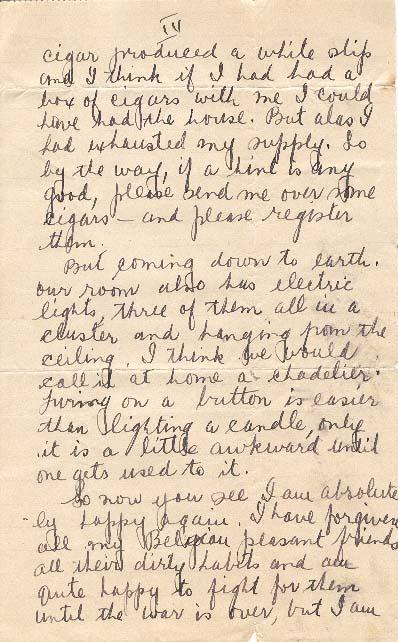 IV
cigar produced a white slip
and I think if I had had a
box of cigars with me I could
have had the house. But alas I
had exhausted my supply. So
by the way, if a hint is any
good, please send me over some
cigars – and please register
them.
But coming down to earth.
our room also has electric
lights, three of them all in a
cluster and hanging from the
ceiling. I think we would
call it at home a chadelier.
on a button is easier
than lighting a candle, only
it is a little awkward until
one gets used to it.
So now you see I am absolute
ly happy again. I have forgiven
all my Belgian peasant friends
all their dirty habits and am
quite happy to fight for them
until the war is over, but I am